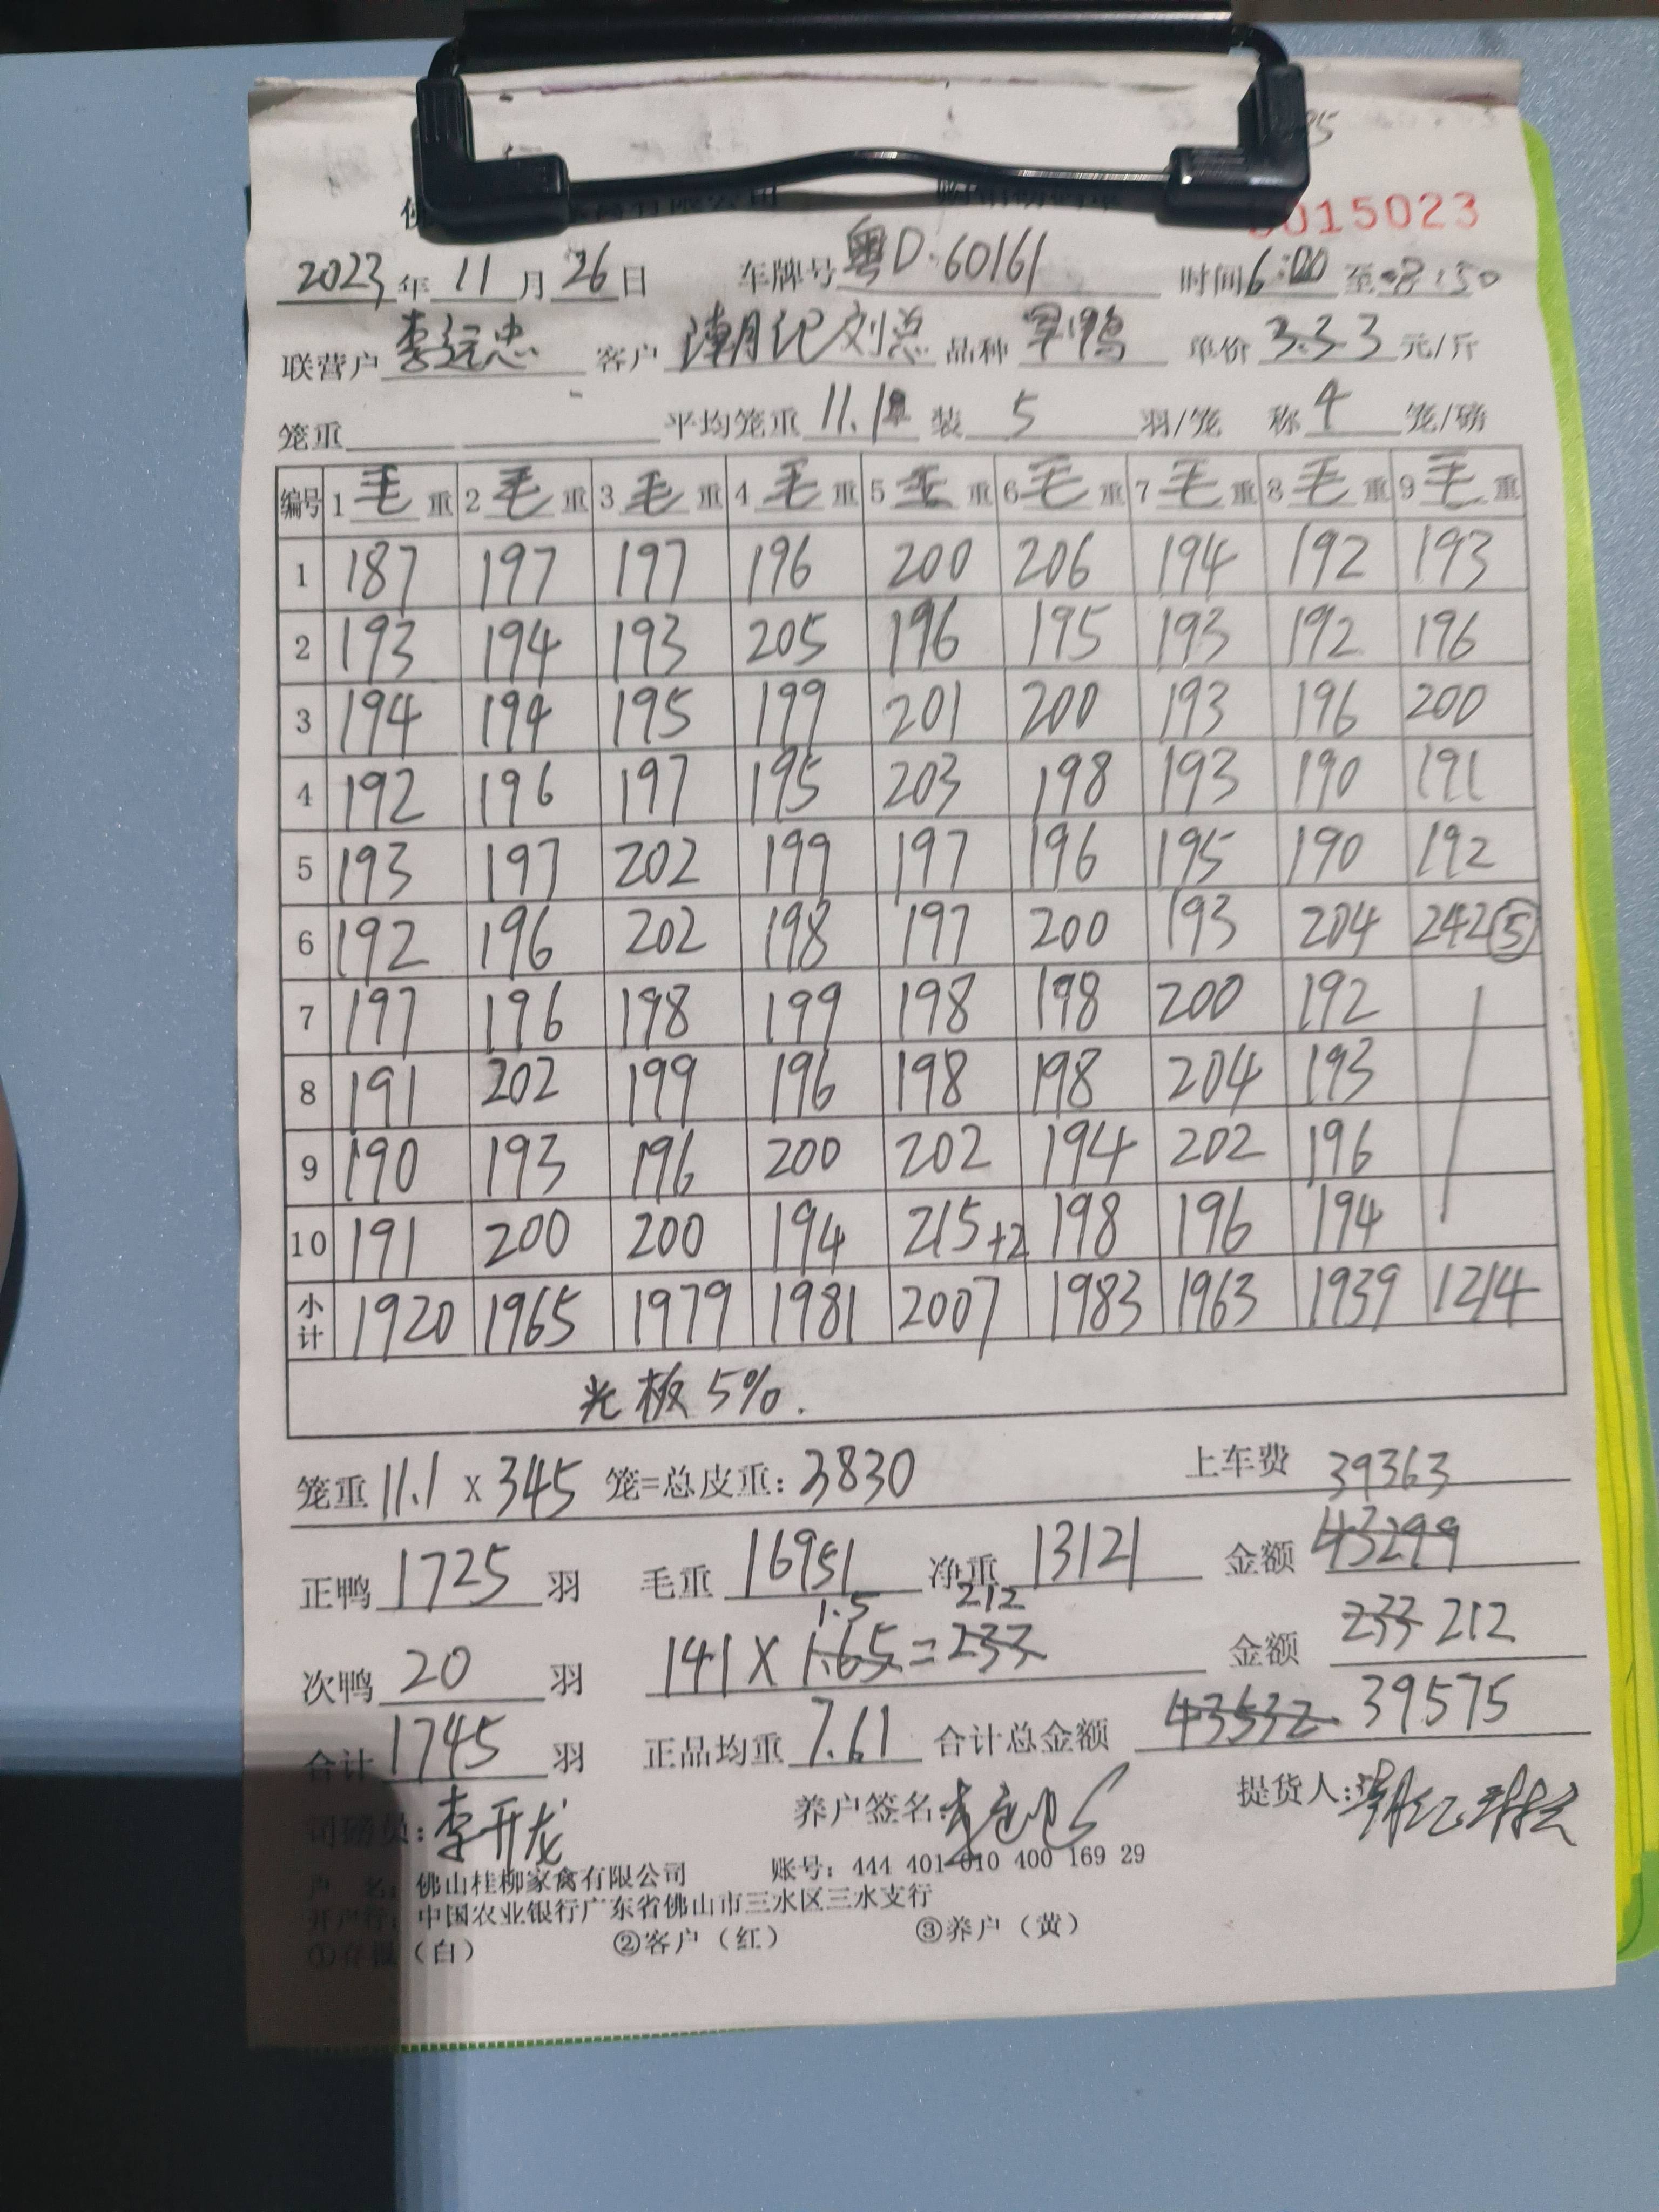 015023
2023 年 11 月 26 日 车牌号 粤D·60161 时间 6:00 至 8:50
联营户 李远忠 客户 潮记刘总 品种 旱鸭 单价 3.3 3 元/斤
笼重 平均笼重 11.1 装 5 羽/笼 称 4 笼/磅
编号 1 毛 重 2 毛 重 3 毛 重 4 毛 重 5 毛 重 6 毛 重 7 毛 重 8 毛 重 9 毛 重
1 187 197 197 196 200 206 194 192 193
2 193 194 193 205 196 195 193 192 196
3 194 194 195 199 201 200 193 196 200
4 192 196 197 195 203 198 193 190 191
5 193 197 202 199 197 196 195 190 192
6 192 196 202 198 197 200 193 204 242 ⑤
7 197 196 198 199 198 198 200 192
8 191 202 199 196 198 198 204 193
9 190 193 196 200 202 194 202 196
10 191 200 200 194 215+2 198 196 194
小计 1920 1965 1979 1981 2007 1983 1963 1939 1214
光板 5%.
笼重 11.1 X 345 笼=总皮重: 3830 上车费 39363
正鸭 1725 羽 毛重 16951 净重 13121 金额 43299
1.5 212
次鸭 20 羽 141 X 1.65 = 233 金额 233 212
合计 1745 羽 正品均重 7.61 合计总金额 43532 39575
司磅员: 李开龙 养户签名: 提货人:
户 名: 佛山桂柳家禽有限公司 账号: 444 401 010 400 169 29
开户行: 中国农业银行广东省佛山市三水区三水支行
①存根(白) ②客户(红) ③养户(黄)